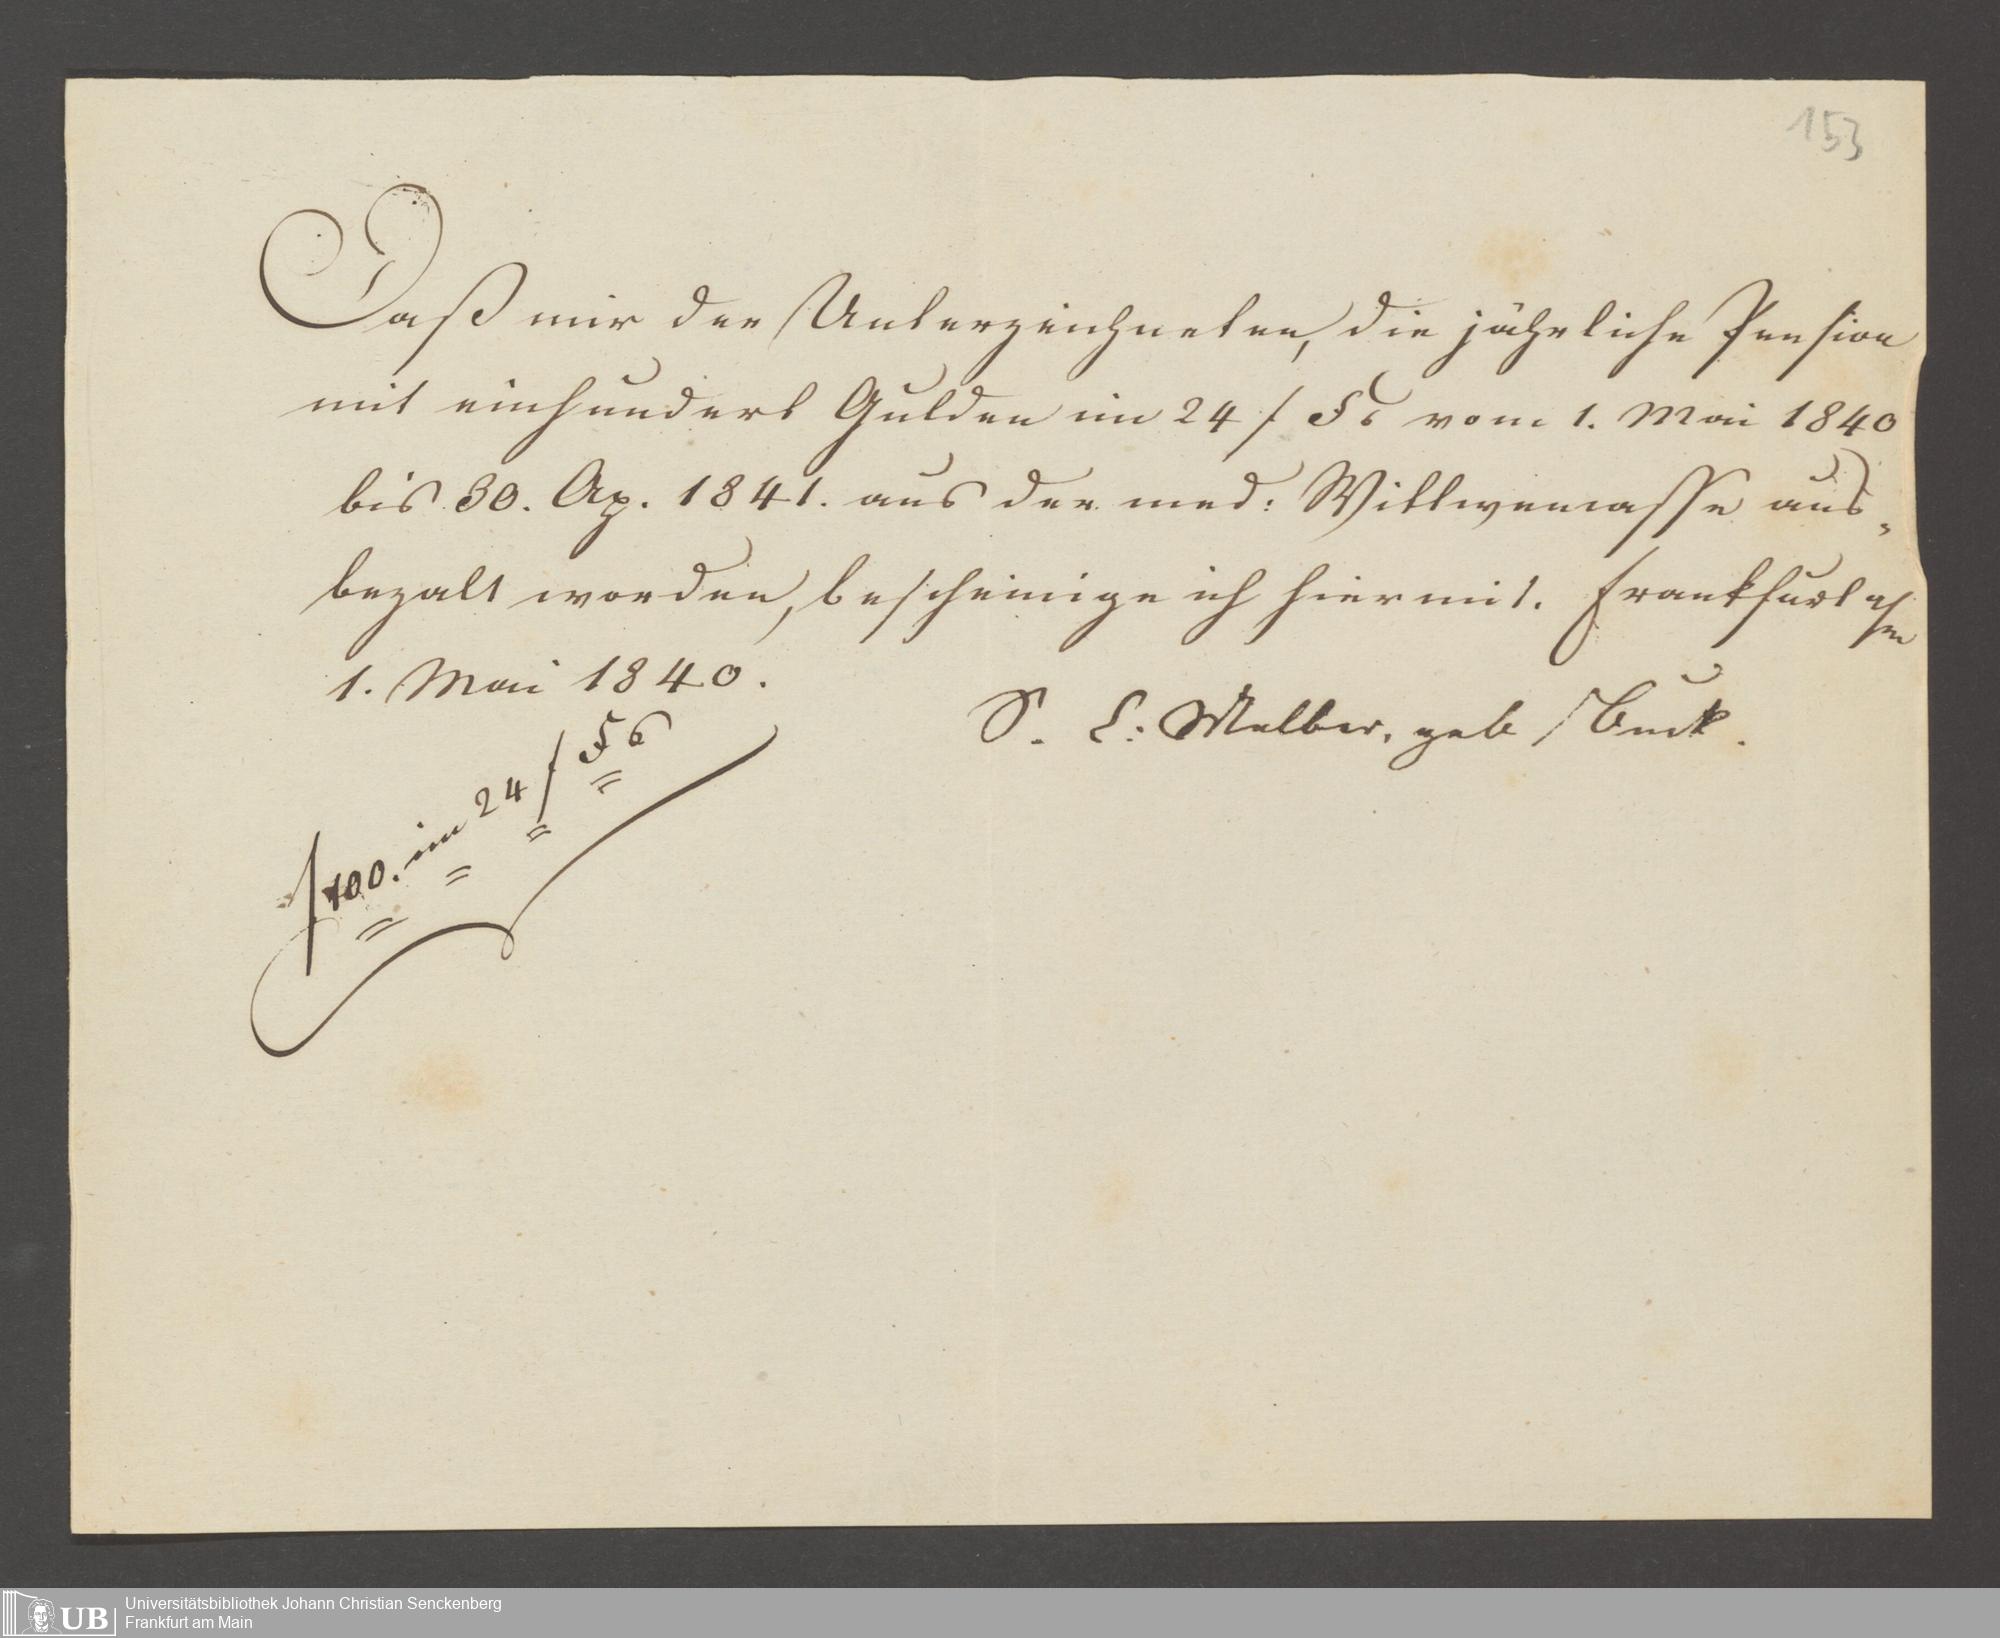 153
Daß mir der Unterzeichneten, die jährliche Pension
mit einhundert Gulden im 24 f Fs vom 1. Mai 1840
bis 30. Ap. 1841. aus der med: Wittwencasse aus-
bezalt worden, bescheinige ich hiermit. Frankfurt
1. Mai 1840.
S. C: Melber, geb Buck.
f 100. im 24 f Fs
UB Universitätsbibliothek Johann Christian Senckenberg
Frankfurt am Main